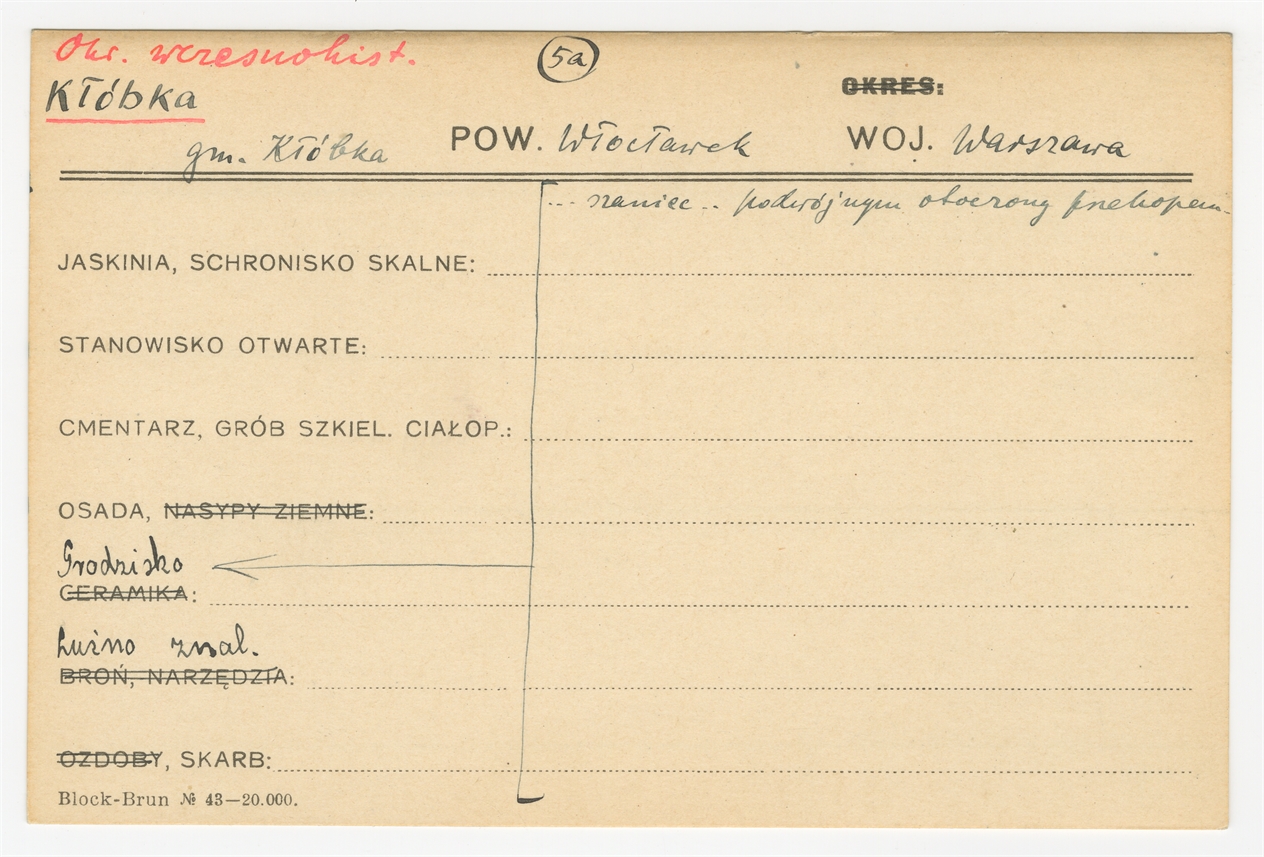 Okr. wczesnohist.
5a
Kłóbka
OKRES:
gm. Kłóbka POW. Włocławek WOJ. Warszawa
... szaniec .. podwójnym otoczony przekopem
JASKINIA, SCHRONISKO SKALNE:
STANOWISKO OTWARTE:
CMENTARZ, GRÓB SZKIEL. CIAŁOP.:
OSADA, NASYPY ZIEMNE:
Grodzisko
CERAMIKA:
Luźno znal.
BROŃ, NARZĘDZIA:
OZDOBY, SKARB:
Block-Brun № 43—20.000.